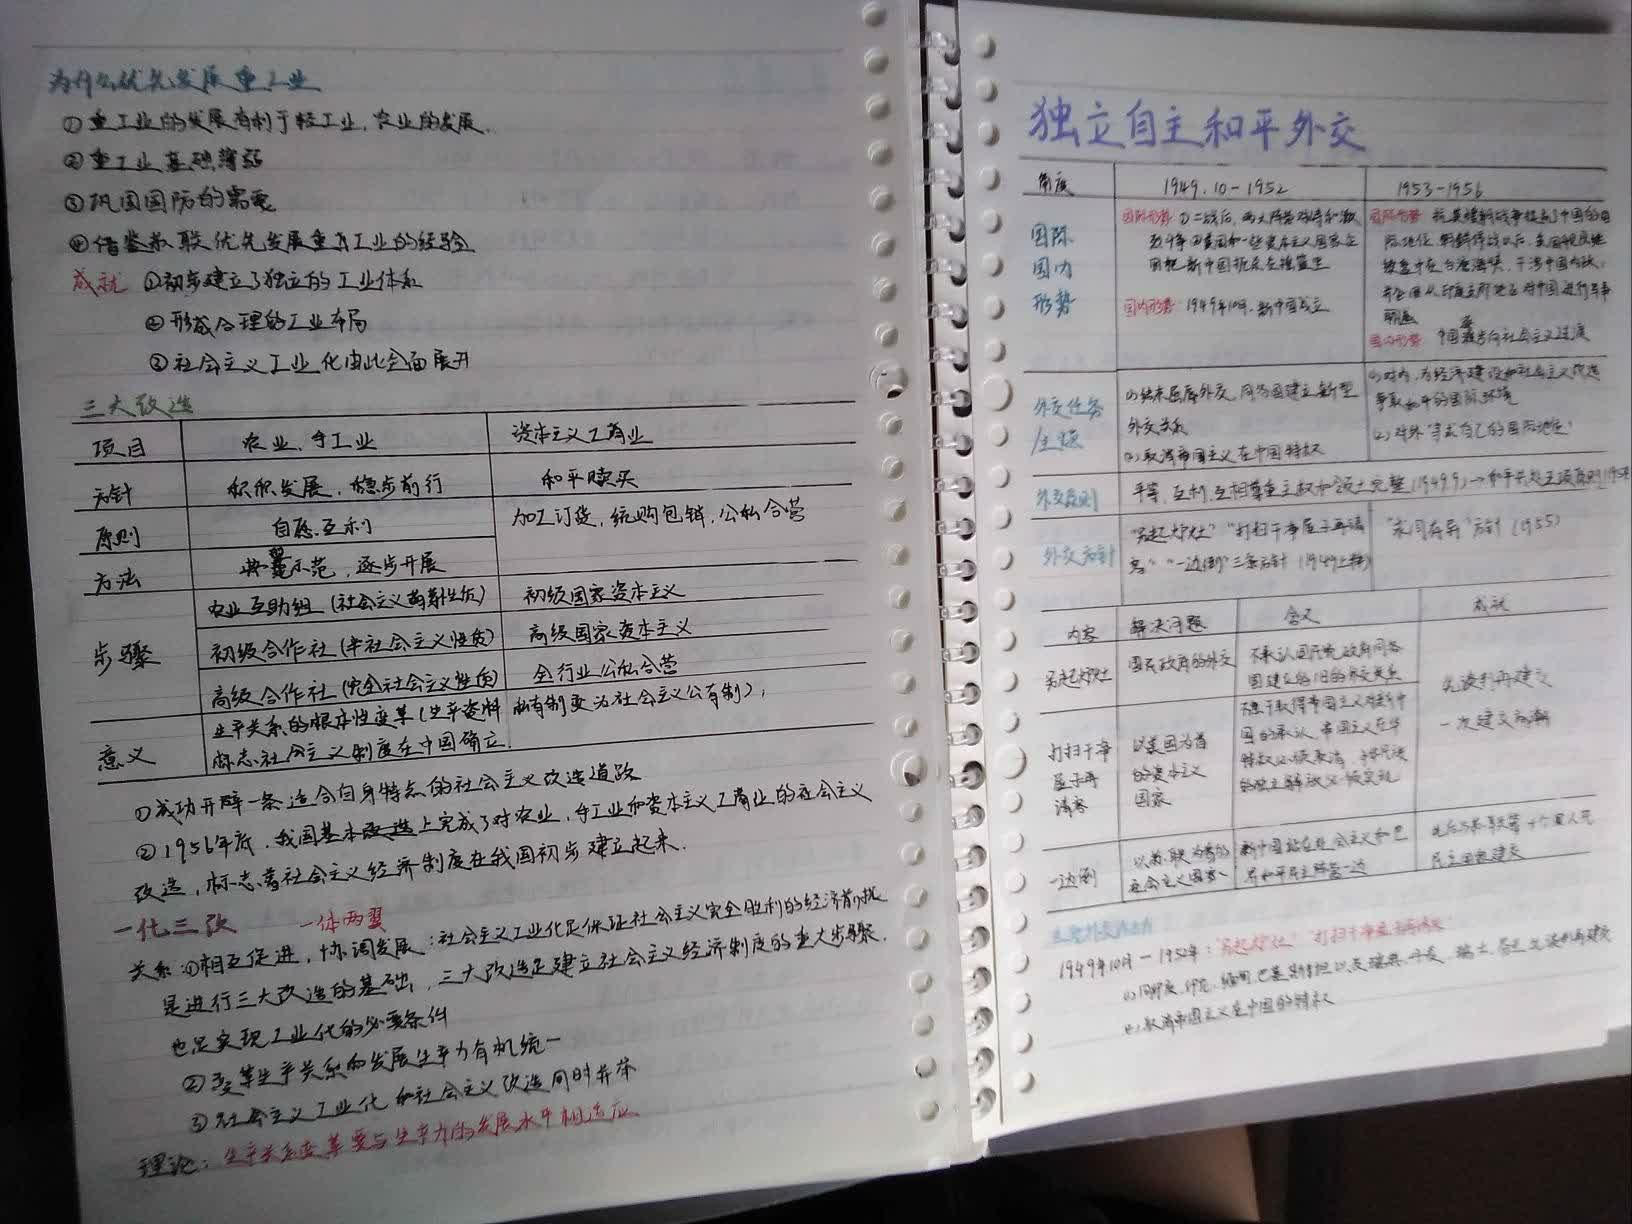 为什么优先发展重工业
①重工业的发展有利于轻工业,农业的发展.
②重工业基础薄弱
③巩固国防的需要
④借鉴苏联优先发展重工业的经验
成就 ①初步建立了独立的工业体系
②形成合理的工业布局
③社会主义工业化由此全面展开
三大改造
项目 农业,手工业 资本主义工商业
方针 积极发展,稳步前行 和平赎买
原则 自愿互利 加工订货,统购包销,公私合营
方法 典型示范,逐步开展
步骤 农业互助组(社会主义萌芽性质) 初级国家资本主义
初级合作社(半社会主义性质) 高级国家资本主义
高级合作社(完全社会主义性质) 全行业公私合营
意义 生产关系的根本性变革(生产资料私有制变为社会主义公有制),
标志社会主义制度在中国确立.
①成功开辟一条适合自身特点的社会主义改造道路
②1956年底,我国基本上完成了对农业,手工业和资本主义工商业的社会主义
改造,标志着社会主义经济制度在我国初步建立起来.
一化三改 一体两翼
关系:①相互促进,协调发展:社会主义工业化是保证社会主义完全胜利的经济前提
是进行三大改造的基础,三大改造是建立社会主义经济制度的重大步骤,
也是实现工业化的必要条件
②变革生产关系和发展生产力有机统一
③社会主义工业化和社会主义改造同时并举
理论:生产关系变革要与生产力的发展水平相适应
独立自主和平外交
角度 1949.10-1952 1953-1956
国际国内形势
国际形势 ①二战后,两大阵营对峙和激
烈斗争②美国和一些资本主义国家企
图把新中国扼杀在摇篮里
国内形势 1949年10月,新中国成立
国际形势 抗美援朝战争提高了中国的国
际地位,朝鲜停战以后,美国
在台湾海峡,干涉中国内政,
对中国进行军事
国内形势 中国 向社会主义过渡
外交任务/主题
(1)结束屈辱外交,同各国建立新型
外交关系
(2)取消帝国主义在中国特权
(1)对内,为经济建设和社会主义改造
争取和平的国际环境
(2)对外寻求自己的国际地位
外交原则 平等,互利,互相尊重主权和领土完整(1949.9)→和平共处五项原则
外交方针 “另起炉灶”“打扫干净屋子再请
客”“一边倒”三条方针(1949上半) “求同存异”方针(1955)
内容 解决问题 含义 成就
另起炉灶 国民政府的外交 不承认国民党政府同各
国建立的旧的外交关系
先谈判再建交
一次建交高潮
打扫干净
屋子再
请客
以美国为首
的资本主义
国家
不急于取得帝国主义对新中
国的承认,帝国主义在华
特权必须取消
一边倒 以苏联为首的
社会主义国家 新中国站在社会主义和世
界和平民主阵营一边
先后与苏联等十个国人民
民主国家建交
1949年10月-1952年:“另起炉灶”“打扫干净屋子再请客”
(1)同印度,印尼,缅甸,巴基斯坦以及瑞典,丹麦,瑞士,芬兰 先谈判再建交
(2)取消帝国主义在中国的特权